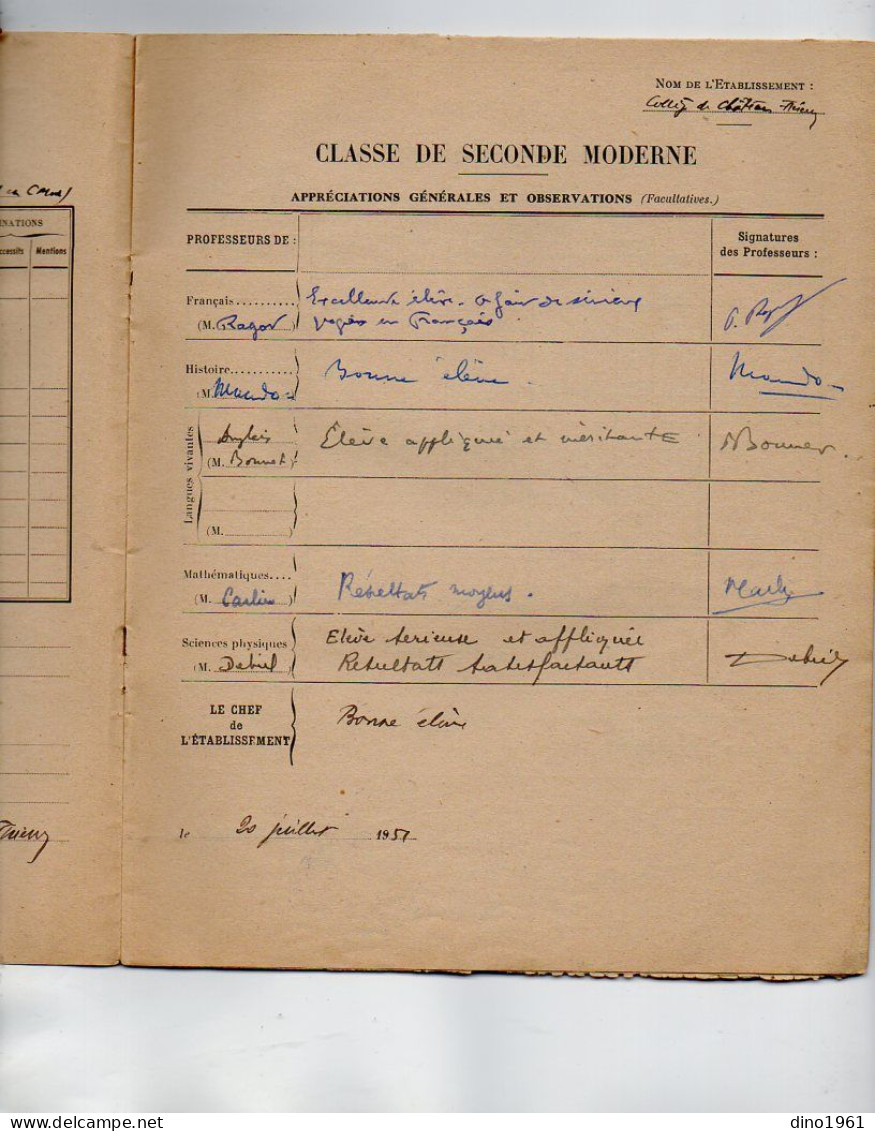 NOM DE L'ETABLISSEMENT :
Collège de Château-Thierry
CLASSE DE SECONDE MODERNE
APPRÉCIATIONS GÉNÉRALES ET OBSERVATIONS (Facultatives.)
INATIONS
Mentions
PROFESSEURS DE :
Signatures
des Professeurs :
Français..........
(M. Ragot )
Excellente élève. A fait de sérieux
progrès en Français.
Histoire...........
(M. Mando )
Bonne élève.
Mando
Langues vivantes
Anglais
(M. Bonnet )
Élève appliquée et méritante
Bonnet
(M. )
Mathématiques....
(M. Carlier )
Résultats moyens.
Sciences physiques
(M. Debiel )
Elève serieuse et appliquée
Résultats satisfaisants
Debiel
LE CHEF
de
L'ÉTABLISSEMENT
Bonne élève
le 20 juillet 1951
Thierry
dino1961